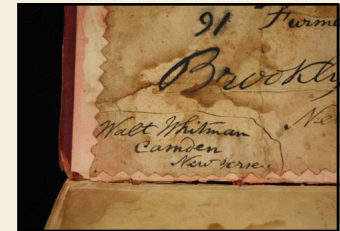 91 Furm
Brookly
Ne
Walt Whitman
Camden
New Jerse